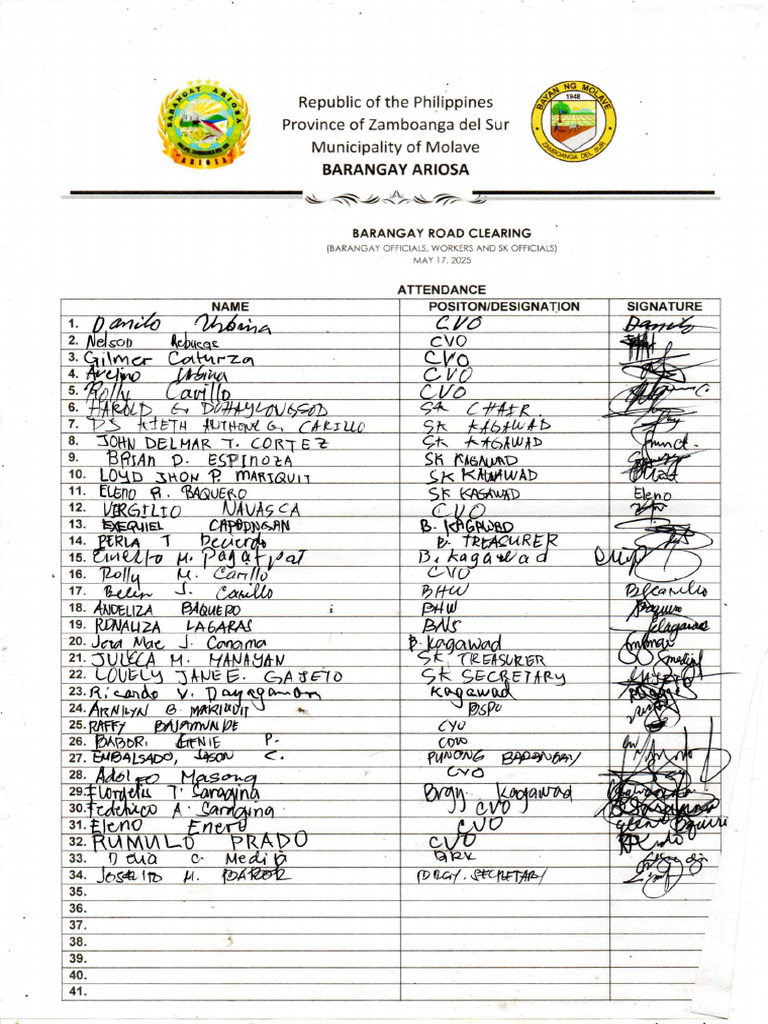 BARANGAY ARIOSA
BAYAN NG MOLAVE
1948
ZAMBOANGA DEL SUR
Republic of the Philippines
Province of Zamboanga del Sur
Municipality of Molave
BARANGAY ARIOSA
BARANGAY ROAD CLEARING
(BARANGAY OFFICIALS, WORKERS AND SK OFFICIALS)
MAY 17, 2025
ATTENDANCE
NAME POSITON/DESIGNATION SIGNATURE
1. Danilo Urbina CVO Danilo
2. Nelson CVO
3. Gilmer Caturza CVO
4. Avelino Urbina CVO
5. Rolly Carillo CVO
6. HAROLD G. DUHAYLONGSOD SK CHAIR.
7. KIETH ANTHONY G. CARILLO SK KAGAWAD
8. JOHN DELMAR T. CORTEZ SK KAGAWAD
9. BRIAN D. ESPINOZA SK KAGAWAD
10. LOYD JHON P. MARIQUIT SK KAGAWAD
11. ELENO R. BAQUERO SK KAGAWAD Eleno
12. VERGILIO NAVASCA CVO
13. EXEQUIEL CAPONGAN B. KAGAWAD
14. PERLA T B. TREASURER
15. Ernesto M. Pagatpat B. kagawad
16. Rolly M. Carillo CVO
17. Belen J. Carillo BHW
18. ANDELIZA BAQUERO BHW
19. RONALIZA LAGARAS BNS
20. Mae J. B. Kagawad
21. M. MANAYAN SK TREASURER
22. LOVELY JANE E. SK SECRETARY
23. Ricardo V. Kagawad
24. ARNILYN G. MARIQUIT BSPO
25. RAFFY BAJAMUNDE CVO
26. BABOR, GENIE P.
27. EMBALSADO, JASON C. PUNONG BARANGAY
28. Adolfo Masong CVO
29. T. Saragina Brgy Kagawad
30. A. Saragina CVO
31. Eleno Enero CVO
32. RUMULO PRADO CVO
33. C. Medija
34. JOSELITO M. BABOR BRGY. SECRETARY
35.
36.
37.
38.
39.
40.
41.